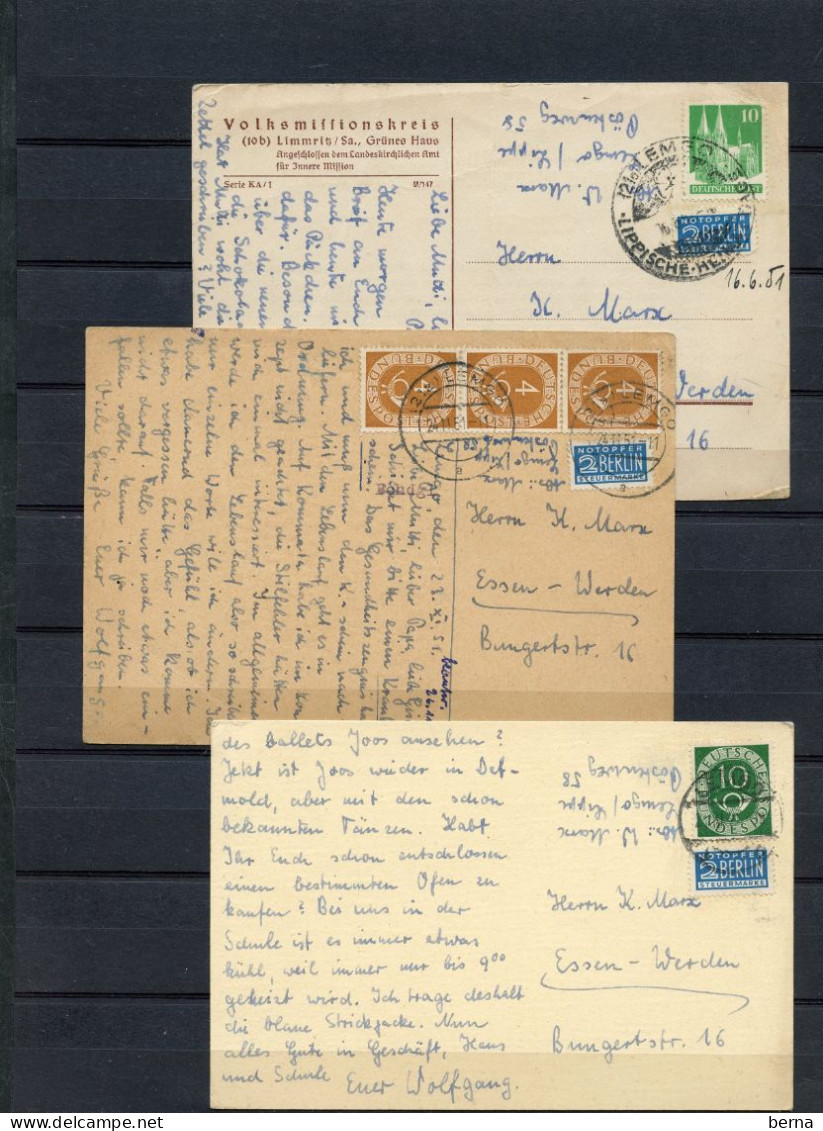 Volksmissionskreis
(10b) Limmritz/Sa., Grünes Haus
Angeschlossen dem Landeskirchlichen Amt
für Innere Mission
Serie KA/1
Liebe Mutti, l
Heute morgen
Brief am Ende
und heute
das Päckchen.
dafür. Besond
über die neuen
die Schokola
Hat Mutti wohl die
Zettel geschrieben? Viele
W. Marx
Lemgo / Lippe
Pöstenweg 58
10
DEUTSCHE POST
NOTOPFER
2 BERLIN
STEUERMARKE
(21a) LEMGO
LIPPISCHE
16.6.51
Herrn
K. Marx
Werden
16
DEUTSCHE BUNDESPOST
4
DEUTSCHE BUNDESPOST
4
DEUTSCHE BUNDESPOST
4
LEMGO
a
LEMGO
24.11.51-11
a
NOTOPFER
2 BERLIN
STEUERMARKE
Abs.: W. Marx
Lemgo/Lippe
Lemgo, den 23.XI.51.
Liebe Mutti, lieber Papa,
Schickt mir bitte einen
schein. Das Gesundheitszeugnis
ich und muß nun den K.-schein nach
liefern. Mit dem Lebenslauf geht es in
Ordnung. Auf Kommata habe ich im
zept nicht geachtet, die Stilfehler hätten
mich einmal interessiert. Im allgemeinen
werde ich den Lebenslauf also so schreiben
nur einzelne Worte will ich ändern. Ich
habe dauernd das Gefühl, als ob ich
etwas vergessen hätte, aber ich komme
nicht darauf. Falls mir noch etwas ein-
fallen sollte, kann ich ja schreiben.
Viele Grüße Euer Wolfgang.
Herrn K. Marx
Essen - Werden
Bungertstr. 16
des Ballets Joos ansehen?
Jetzt ist Joos wieder in Det-
mold, aber mit den schon
bekannten Tänzen. Habt
Ihr Euch schon entschlossen
einen bestimmten Ofen zu
kaufen? Bei uns in der
Schule ist es immer etwas
kühl, weil immer nur bis 9⁰⁰
geheizt wird. Ich trage deshalb
die blaue Strickjacke. Nun
alles Gute in Geschäft, Haus
und Schule Euer Wolfgang.
Abs.: W. Marx
Lemgo/Lippe
Pöstenweg 58
DEUTSCHE BUNDESPOST
10
NOTOPFER
2 BERLIN
STEUERMARKE
Herrn K. Marx
Essen - Werden
Bungertstr. 16
delcampe.net
berna